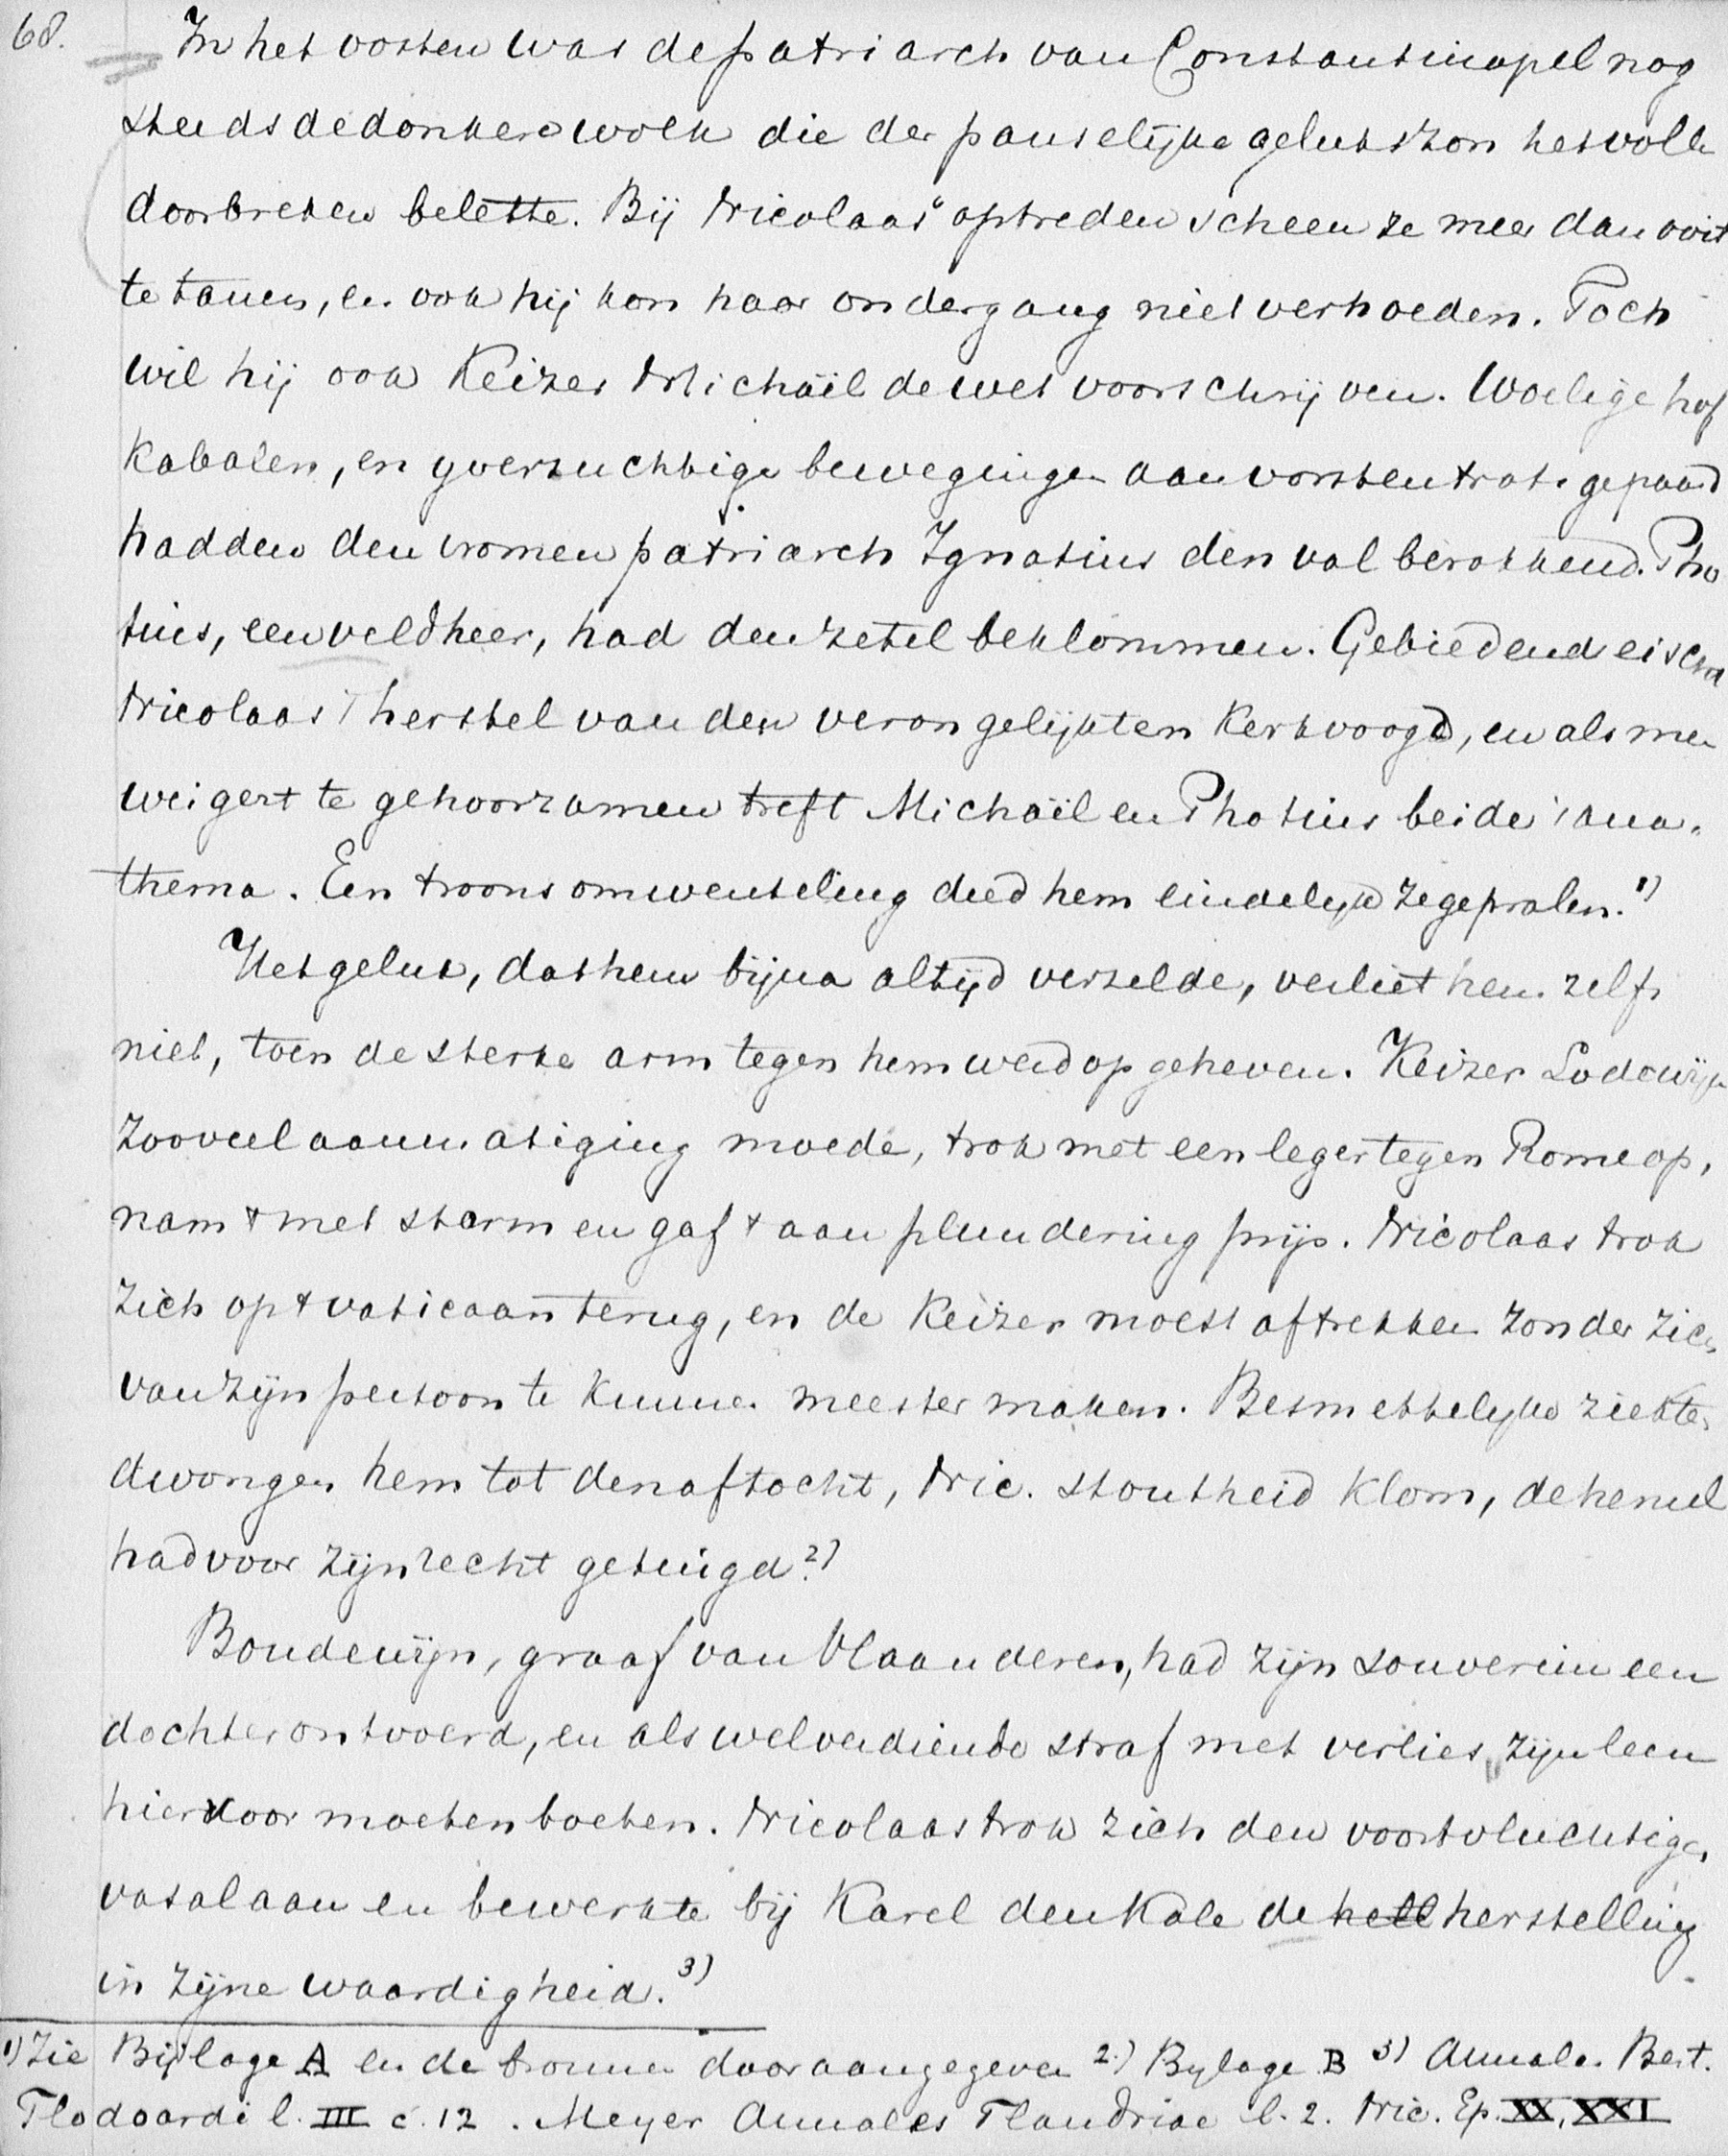 68.
In het oosten was de patriarch van Constantinopel nog
steeds de donkere wolk die der pauselijke gelukszon het volle
doorbreken belette. Bij Nicolaas' optreden scheen ze meer dan ooit
te tanen, en ook hij kon haar ondergang niet verhoeden. Toch
wil hij ook Keizer Michaïl de wet voorschrijven. Woelige hof
kabalen, en yverzuchtige bewegingen aan vorstentrots gepaard
hadden den vromen patriarch Ignatius den val berokkend. Pho
tius, een veldheer, had den zetel beklommen. Gebiedend eischt
Nicolaas 't herstel van den verongelijkten Kerkvoogd, en als men
weigert te gehoorzamen treft Michaïl en Photius beide 's ana-
thema. Een troonsomwenteling deed hem eindelijk zegepralen. 1)
Het geluk, dat hem bijna altijd verzelde, verliet hem zelfs
niet, toen de sterke arm tegen hem werd opgeheven. Keizer Lodewijk
zooveel aanmatiging moede, trok met een leger tegen Rome op,
nam 't met storm en gaf 't aan plundering prijs. Nicolaas trok
zich op 't vaticaan terug, en de Keizer moest aftrekken zonder zich
van zijn persoon te kunnen meester maken. Besmettelijke ziekten
dwongen hem tot den aftocht, Nic. stoutheid klom, de hemel
had voor zijn recht getuigd. 2)
Boudewijn, graaf van Vlaanderen, had zijn souverein een
dochter ontvoerd, en als welverdiende straf met verlies zijn leen
hiervoor moeten boeten. Nicolaas trok zich den voortvluchtigen
vasal aan en bewerkte bij Karel den Kale de hell herstelling
in zijne waardigheid. 3)
1) Zie Bijlage A en de bronnen daar aangegeven 2.) Bylage B 3) Annal. Bert.
Flodoardi l. III c. 12. Meyer Annales Flandriae l. 2. Nic. Ep. XX, XXI